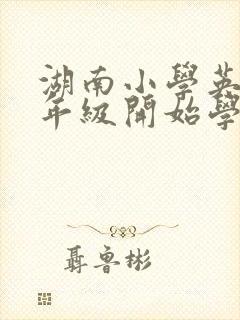 湖南小學英
年級開始學
聶魯彬